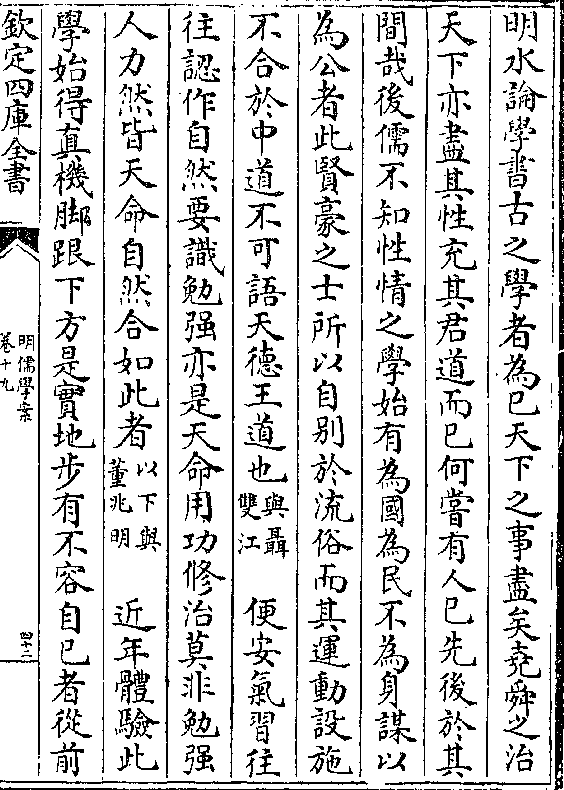 明水論學書古之學者為已天下之事盡矣堯舜之治
天下亦盡其性充其君道而已何嘗有人已先後於其
間哉後儒不知性情之學始有為國為民不為身謀以
為公者此賢豪之士所以自别於流俗而其運動設施
不合於中道不可語天德王道也與聶雙江 便安氣習往
往認作自然要識勉强亦是天命用功修治莫非勉强
人力然皆天命自然合如此者以下與董兆明 近年體驗此
學始得真機脚跟下方是實地步有不容自已者從前
欽定四庫全書
明儒學案
卷十九
四十三